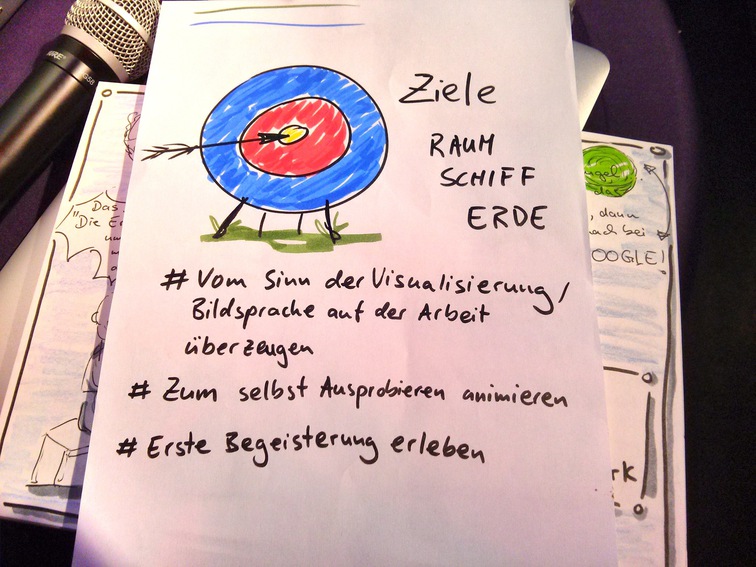 Ziele
RAUM
SCHIFF
ERDE
# Vom Sinn der Visualisierung/
Bildsprache auf der Arbeit
überzeugen
# Zum selbst Ausprobieren animieren
# Erste Begeisterung erleben
G58
Das
"Die
dann
bei
OOGLE!
rk